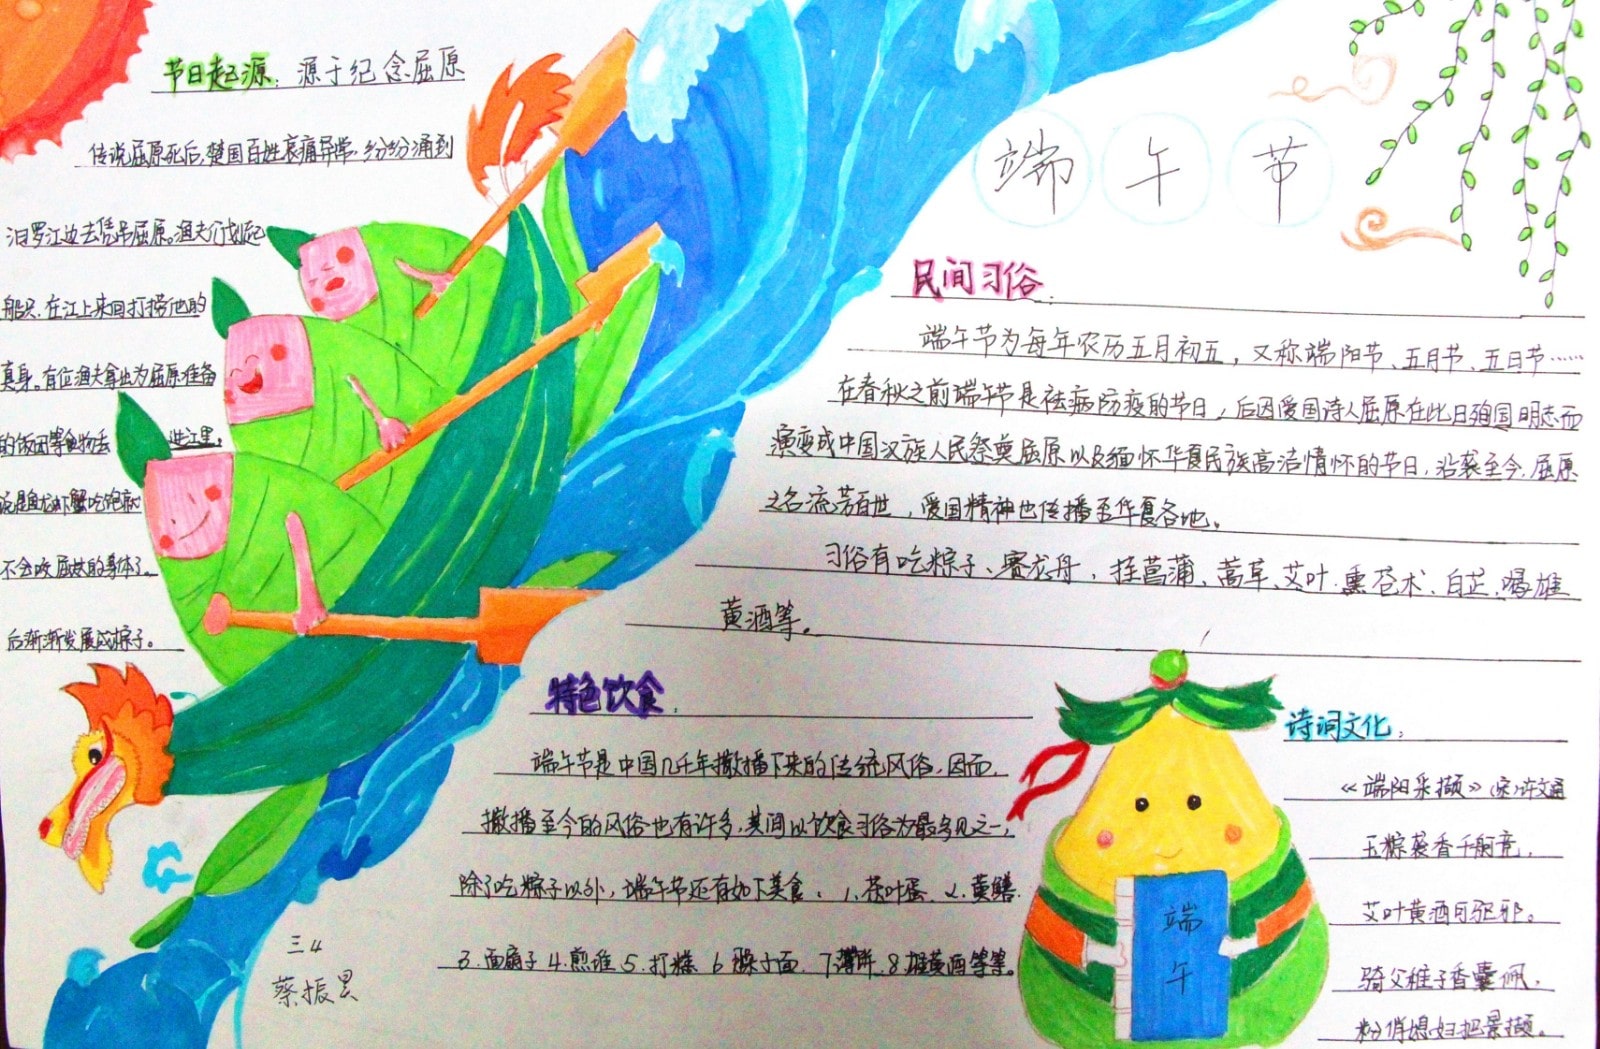 节日起源：源于纪念屈原
传说屈原死后,楚国百姓哀痛异常,纷纷涌到
汨罗江边去凭吊屈原。渔夫们划起
船只,在江上来回打捞他的
真身。有位渔夫拿出为屈原准备
的饭团等食物丢进江里。
说是鱼龙虾蟹吃饱就
不会咬屈大夫的身体了。
后渐渐发展成粽子。
端午节
民间习俗：
端午节为每年农历五月初五，又称端阳节、五月节、五日节……
在春秋之前端午节是祛病防疫的节日，后因爱国诗人屈原在此日殉国明志而
演变成中国汉族人民祭奠屈原以及缅怀华夏民族高洁情怀的节日,沿袭至今,屈原
之名流芳百世，爱国精神也传播至华夏各地。
习俗有吃粽子、赛龙舟，挂菖蒲、蒿草、艾叶,熏苍术、白芷、喝雄
黄酒等。
特色饮食：
端午节是中国几千年撒播下来的传统风俗,因而,
撒播至今的风俗也有许多,其间以饮食习俗为最多见之一,
除了吃粽子以外,端午节还有如下美食、1、茶叶蛋、2、黄鳝
3.面扇子 4.煎堆 5.打糕 6 面 7薄饼.8.雄黄酒等等。
诗词文化：
《端阳采撷》(宋)许文通
玉粽袭香千舸竞,
艾叶黄酒可驱邪。
骑父稚子香囊佩,
粉俏媳妇把景撷。
端
午
三4
蔡振